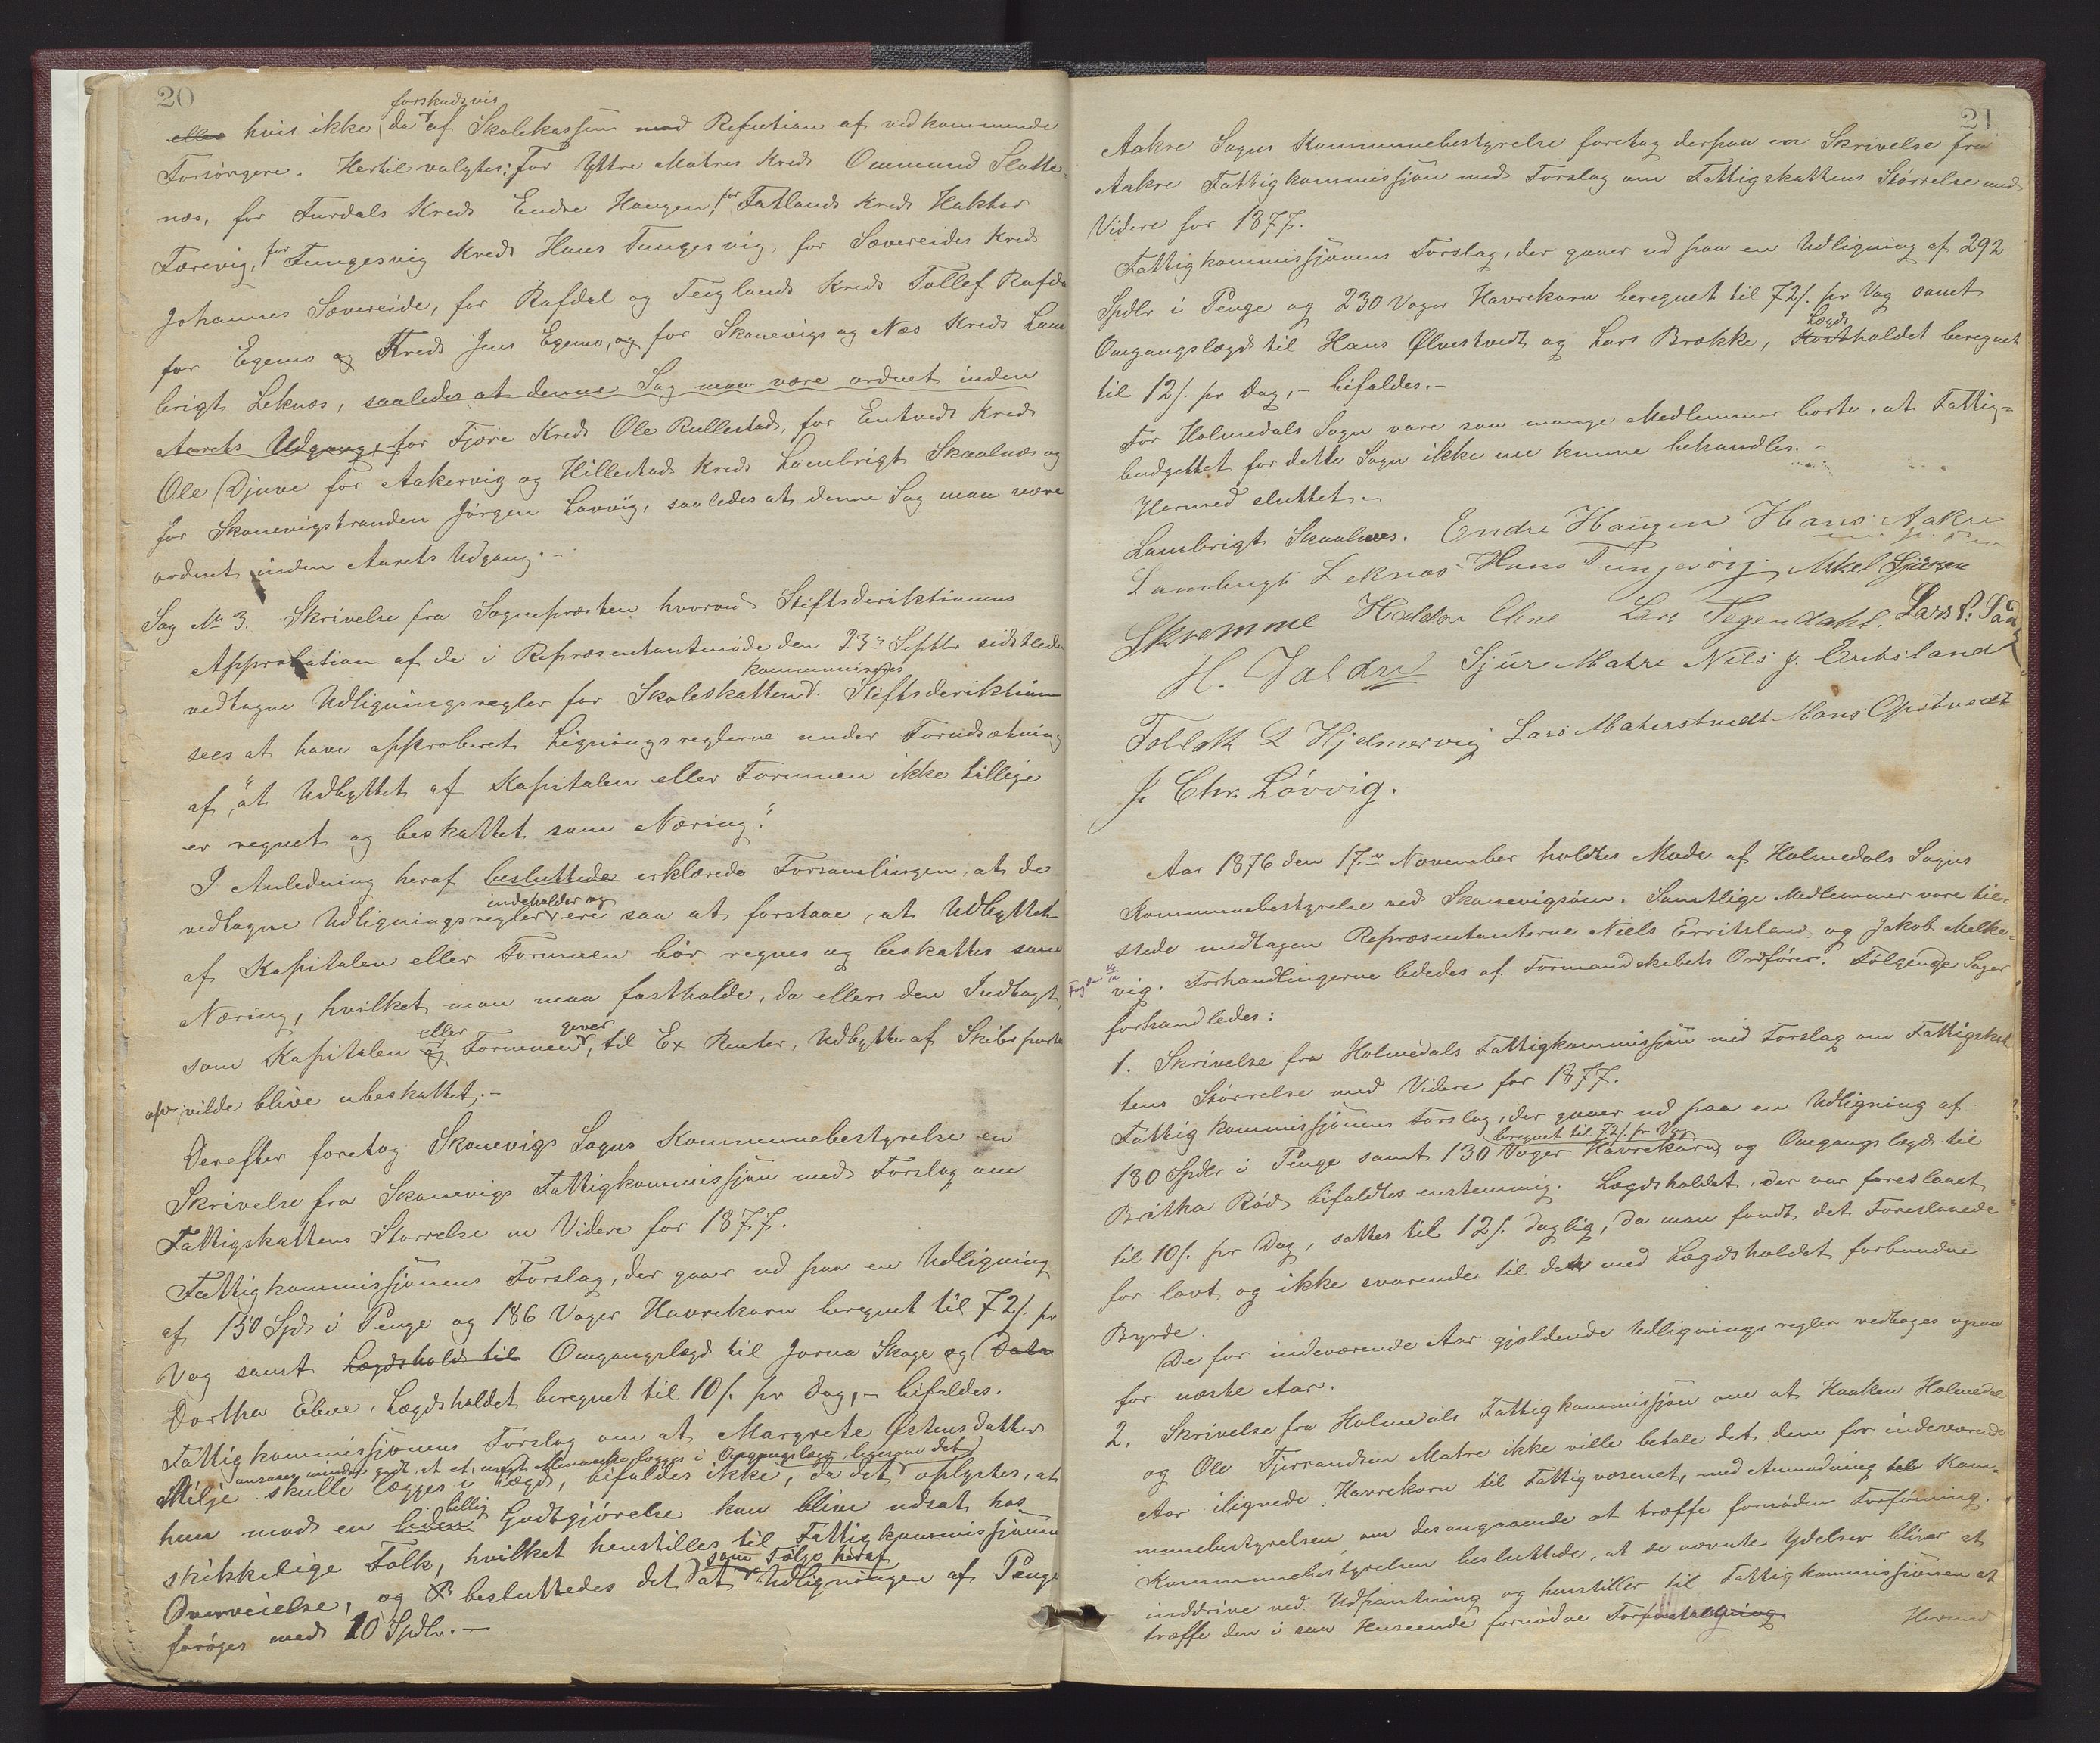 20
forskudsvis
eller hvis ikke, da af Skolekassen mod Refution af vedkommende
Forsörgere. Hertil valgtes: For Yttre Matres Kreds Ommund Slotte-
næs, for Furdals Kreds Endre Haugen, for Fatlands Kreds Haktor
Færevig, for Tungesvig Kreds Hans Tungesvig, for Sævereides Kreds
Johannes Sævereide, for Rafdal og Teiglands Kreds Tollef Rafda
for Egemo og Kreds Jens Egemo, og for Skonevigs og Næs Kreds Lam
brigt Leknæs, saaledes at denne Sag maa være ordnet inden
Aarets Udgang, for Fjære Kreds Ole Rullestad, for Entvedt Kreds
Ole Djuve for Aakervig og Hillestad Kreds Lambrigt Skaalnæs og
for Skonevigstranden Jörgen Løvvig, saaledes at denne Sag maa være
ordnet inden Aarets Udgang.-
Sag No 3. Skrivelse fra Sognepræsten hvorved Stiftsdirektionens
Approbation af de i Repræsentantmøde den 23de Septbr sidstleden
kommuniseres
vedtagne Udligningsregler for Skoleskatten. Stiftsdirektionen
sees at have approberet Ligningsreglerne under Forudsætning
af, "at Udbyttet af Kapitalen eller Formuen ikke tillige
er regnet og beskattet som Næring".
I Anledning heraf besluttede erklærede Forsamlingen, at de
indeholder og
vedtagne Udligningsregler ere saa at forstaae, at Udbyttet
af Kapitalen eller Formuen bör regnes og beskattes som
Næring, hvilket man maa fastholde, da ellers den Indtægt,
eller giver
som Kapitalen og Formuen, til Ex Renter, Udbytte af Skibsparter
osv, vilde blive ubeskattet.-
Derefter foretog Skonevigs Sogns Kommunebestyrelse en
Skrivelse fra Skonevigs Fattigkommissjon med Forslag om
Fattigskattens Störrelse m Videre for 1877.
Fattigkommissjonens Forslag, der gaaer ud paa en Udligning
af 150 Spd i Penge og 186 Voger Havrekorn beregnet til 72/. pr
Vog samt Lægdshold til Omgangslægd til Jorna Skoge og Data
Dorthea Ebne, Lægdsholdet beregnet til 10/. pr Dag,- bifaldes.
Fattigkommissjonens Forslag om at Margrete Østensdatter
ansaaes mindre godt, at et ungt Menneske lægges i Omgangslægd, ligesom det
Milje skulle lægges i Lægd, bifaldes ikke, da det oplystes, at
billig
hun mod en liden Godtgjörelse kan blive udsat hos
skikkelige Folk, hvilket henstilles til Fattigkommissjonens
som Følge heraf
Overveielse, og besluttedes det at Udligningen af Penge
foröges med 10 Spdlr.-
21
Aakre Sogns Kommunebestyrelse foretog derpaa en Skrivelse fra
Aakre Fattigkommissjon med Forslag om Fattigskattens Störrelse med
Videre for 1877.
Fattigkommissjonens Forslag, der gaaer ud paa en Udligning af 292
Spdlr i Penge og 230 Voger Havrekorn beregnet til 72/. pr Vog samt
Lægds
Omgangslægd til Hans Ølvestvedt og Lars Brække, Kostholdet beregnet
til 12/. pr Dag,- bifaldes.-
For Holmedals Sogn vare saa mange Medlemmer borte, at Fattig-
budgettet for dette Sogn ikke nu kunne behandles.-
Hermed sluttet.-
Lambrigt Skaalnæs. Endre Haugen Hans Aakre
Lambrigt Leknæs Hans Tungesvig Mikel Sjürsen
Skromme Haldor Ebne Lars Tegendahl. Lars P.
H. Valdre Sjúr Matre Nils J. Eriksland
Tollak L Hjelmervig Lars Materstvedt Mons Opstvedt
J. Chr. Lövvig.
Aar 1876 den 17de November holdtes Møde af Holmedals Sogns
Kommunebestyrelse ved Skonevigsöen. Samtlige Medlemmer vare til-
stede undtagen Repræsentanterne Niels Erritsland og Jakob Melke-
vig. Forhandlingerne lededes af Formandskabets Ordförer. Fölgende Sager
forhandledes:
1. Skrivelse fra Holmedals Fattigkommissjon med Forslag om Fattigskat
tens Störrelse med Videre for 1877.
Fattigkommissjonens Forslag, der gaaer ud paa en Udligning af
beregnet til 72/. pr Vog
180 Spdlr i Penge samt 130 Voger Havrekorn, og Omgangslægd til
Britha Röd bifaldtes enstemmig. Lægdsholdet, der var foreslaaet
til 10/. pr Dag, sattes til 12/. daglig, da man fandt det Foreslaaede
for lavt og ikke svarende til den med Lægdsholdet forbundne
Byrde.
De for indeværende Aar gjældende Udligningsregler vedtages ogsaa
for næste Aar.
2. Skrivelse fra Holmedals Fattigkommissjon om at Haaken Holmedal
og Ole Tjerrandsen Matre ikke ville betale det dem for indeværende
Aar ilignede Havrekorn til Fattigvæsenet, med Anmodning til Kom-
munebestyrelsen om desangaaende at træffe fornöden Forföining.
Kommunebestyrelsen besluttede, at de nævnte Ydelser bliver at
inddrive ved Udpantning og henstiller til Fattigkommissjonen at
træffe den i saa Henseende fornödne
Hermed